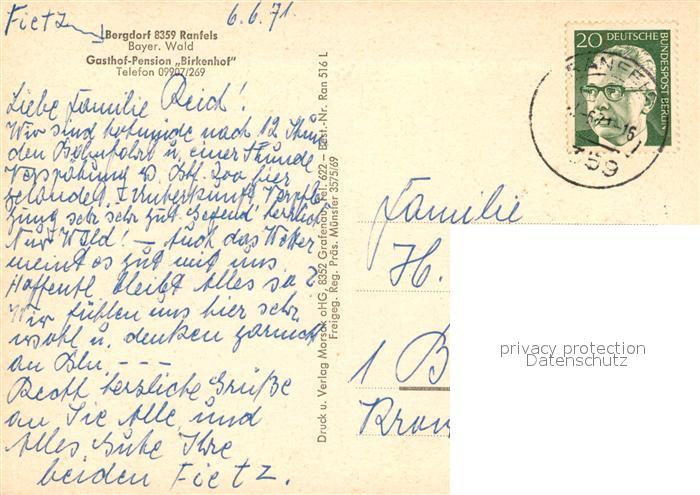 Fietz 6.6.71.
Bergdorf 8359 Ranfels
Bayer. Wald
Gasthof-Pension „Birkenhof"
Telefon 09907/269
Liebe Familie Reich!
Wir sind todmüde nach 12 Stun
den Bahnfahrt u. einer Stunde
Verspätung v. Bhf. Zoo hier
gelandet. Unterkunft Verpfle
gung sehr sehr gut. Gegend herrlich
Nur Wald! — Auch das Wetter
meint es gut mit uns
Hoffentl. bleibt Alles so?
Wir fühlen uns hier sehr
wohl u. denken garnicht
an Bln. — — —
Recht herzliche Grüße
an Sie Alle und
Alles Gute Ihre
beiden Fietz.
Druck u. Verlag Morsak oHG, 8352 Grafenau, Tel. 622 — Best.-Nr. Ran 516 L
Freigeg. Reg. Präs. Münster 3575/69
20 DEUTSCHE BUNDESPOST BERLIN
RANFELS
6.71-16
359
Familie
H.
1 B
Kron
privacy protection
Datenschutz